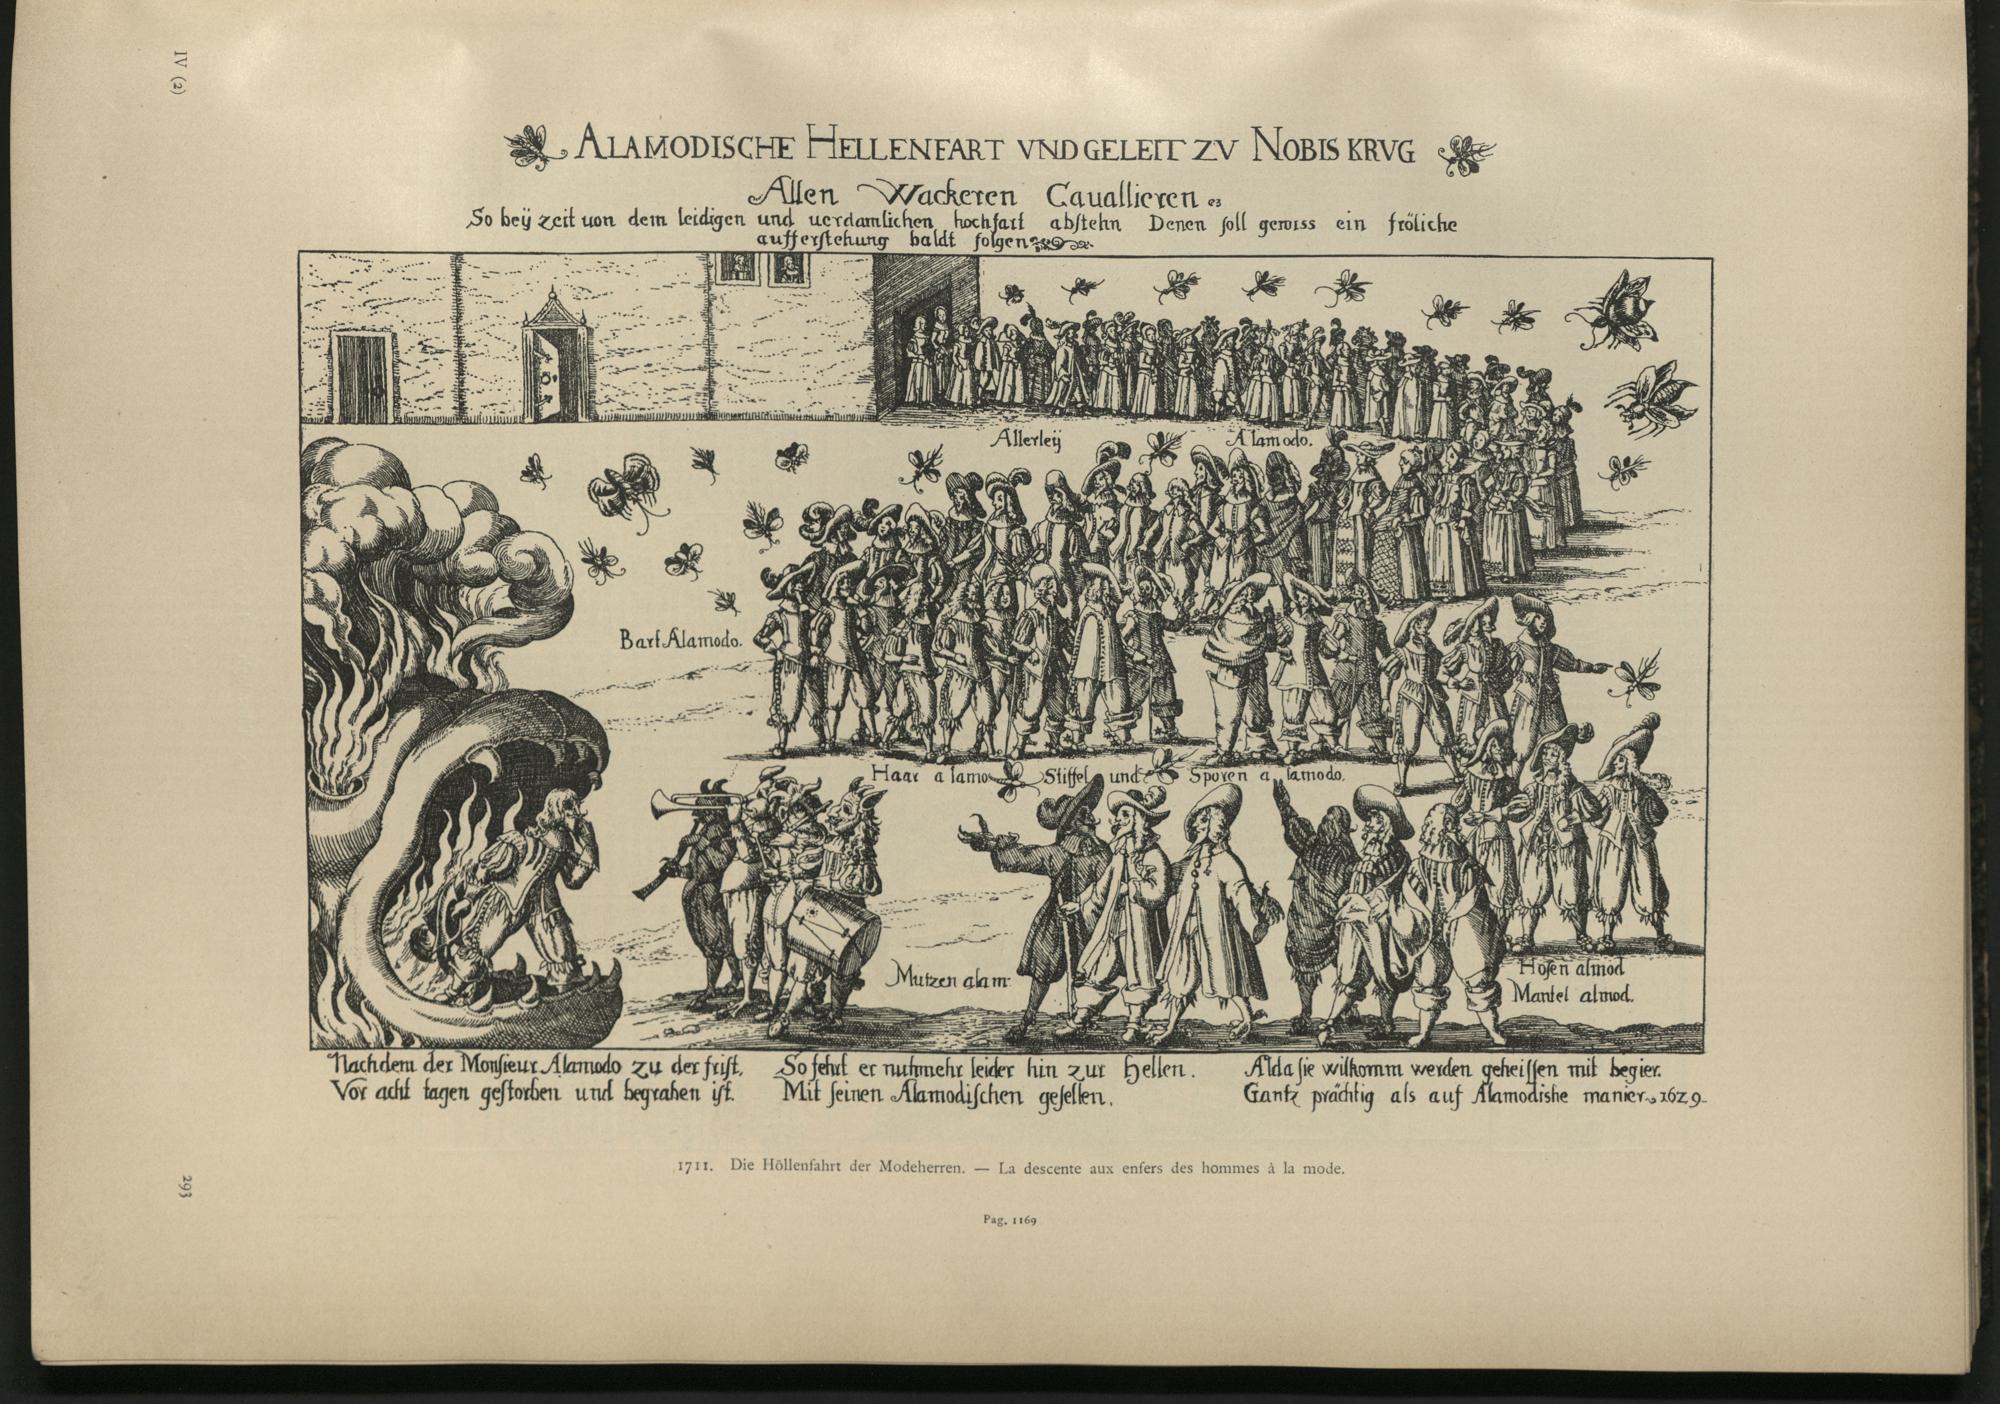 IV (2)
ALAMODISCHE HELLENFART VND GELEIT ZV NOBIS KRVG
Allen Wackeren Cauallieren
So beÿ zeit uon dem leidigen und uerdamlichen hochfart abstehn Denen soll gewiss ein fröliche
aufferstehung baldt folgen
Allerleÿ Alamodo.
Bart Alamodo.
Haar a lamo Stiffel und Sporen a lamodo.
Mutzen alam
Hosen almod
Mantel almod.
Nachdem der Monsieur Alamodo zu der frist, So fehrt er nuhmehr leider hin zur Hellen. Alda sie wilkomm werden geheissen mit begier.
Vor acht tagen gestorben und begraben ist. Mit seinen Alamodischen gesellen. Gantz prächtig als auf Alamodishe manier 1629
1711. Die Höllenfahrt der Modeherren. — La descente aux enfers des hommes à la mode.
293
Pag. 1169